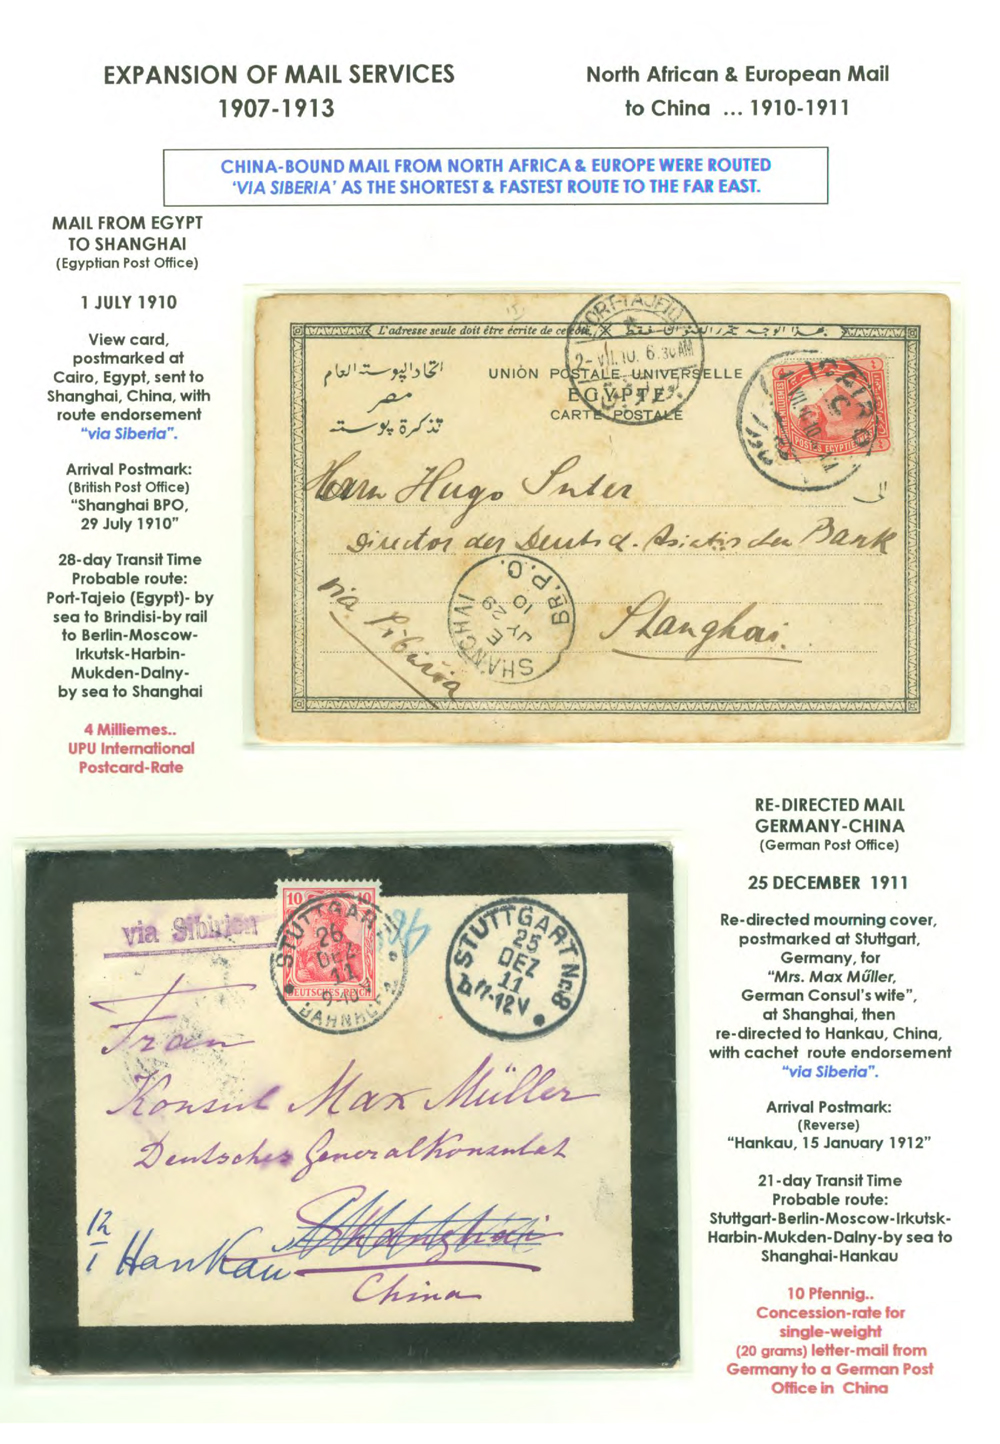 EXPANSION OF MAIL SERVICES
1907-1913
North African & European Mail
to China ... 1910-1911
CHINA-BOUND MAIL FROM NORTH AFRICA & EUROPE WERE ROUTED
'VIA SIBERIA' AS THE SHORTEST & FASTEST ROUTE TO THE FAR EAST.
MAIL FROM EGYPT
TO SHANGHAI
(Egyptian Post Office)
1 JULY 1910
View card,
postmarked at
Cairo, Egypt, sent to
Shanghai, China, with
route endorsement
"via Siberia".
Arrival Postmark:
(British Post Office)
"Shanghai BPO,
29 July 1910"
28-day Transit Time
Probable route:
Port-Tajeio (Egypt)- by
sea to Brindisi-by rail
to Berlin-Moscow-
Irkutsk-Harbin-
Mukden-Dalny-
by sea to Shanghai
4 Milliemes..
UPU International
Postcard-Rate
L'adresse seule doit être écrite de ce côté
PORT-TAJEIO
2- VII.10. 6.30 AM
اتحاد اليوستة العام
مصر
تذكرة بوستة
UNION POSTALE UNIVERSELLE
EGYPTE
CARTE POSTALE
CAIRO
POSTES EGYPTIENNES
Herrn Hugo Suter
Director der Deutsch-Asiatischen Bank
Shanghai.
via Sibiria
SHANGHAI BR.P.O.
E
JY 29
10
RE-DIRECTED MAIL
GERMANY-CHINA
(German Post Office)
25 DECEMBER 1911
Re-directed mourning cover,
postmarked at Stuttgart,
Germany, for
"Mrs. Max Müller,
German Consul's wife",
at Shanghai, then
re-directed to Hankau, China,
with cachet route endorsement
"via Siberia".
Arrival Postmark:
(Reverse)
"Hankau, 15 January 1912"
21-day Transit Time
Probable route:
Stuttgart-Berlin-Moscow-Irkutsk-
Harbin-Mukden-Dalny-by sea to
Shanghai-Hankau
10 Pfennig..
Concession-rate for
single-weight
(20 grams) letter-mail from
Germany to a German Post
Office in China
via Sibirien
10 10
DEUTSCHES REICH
STUTTGART
26
DEZ
11
BAHNHOF
STUTTGART No.8
25
DEZ
11
11-12V
Frau
Konsul Max Müller
Deutsches Generalkonsulat
Shanghai
12/1 Hankau
China